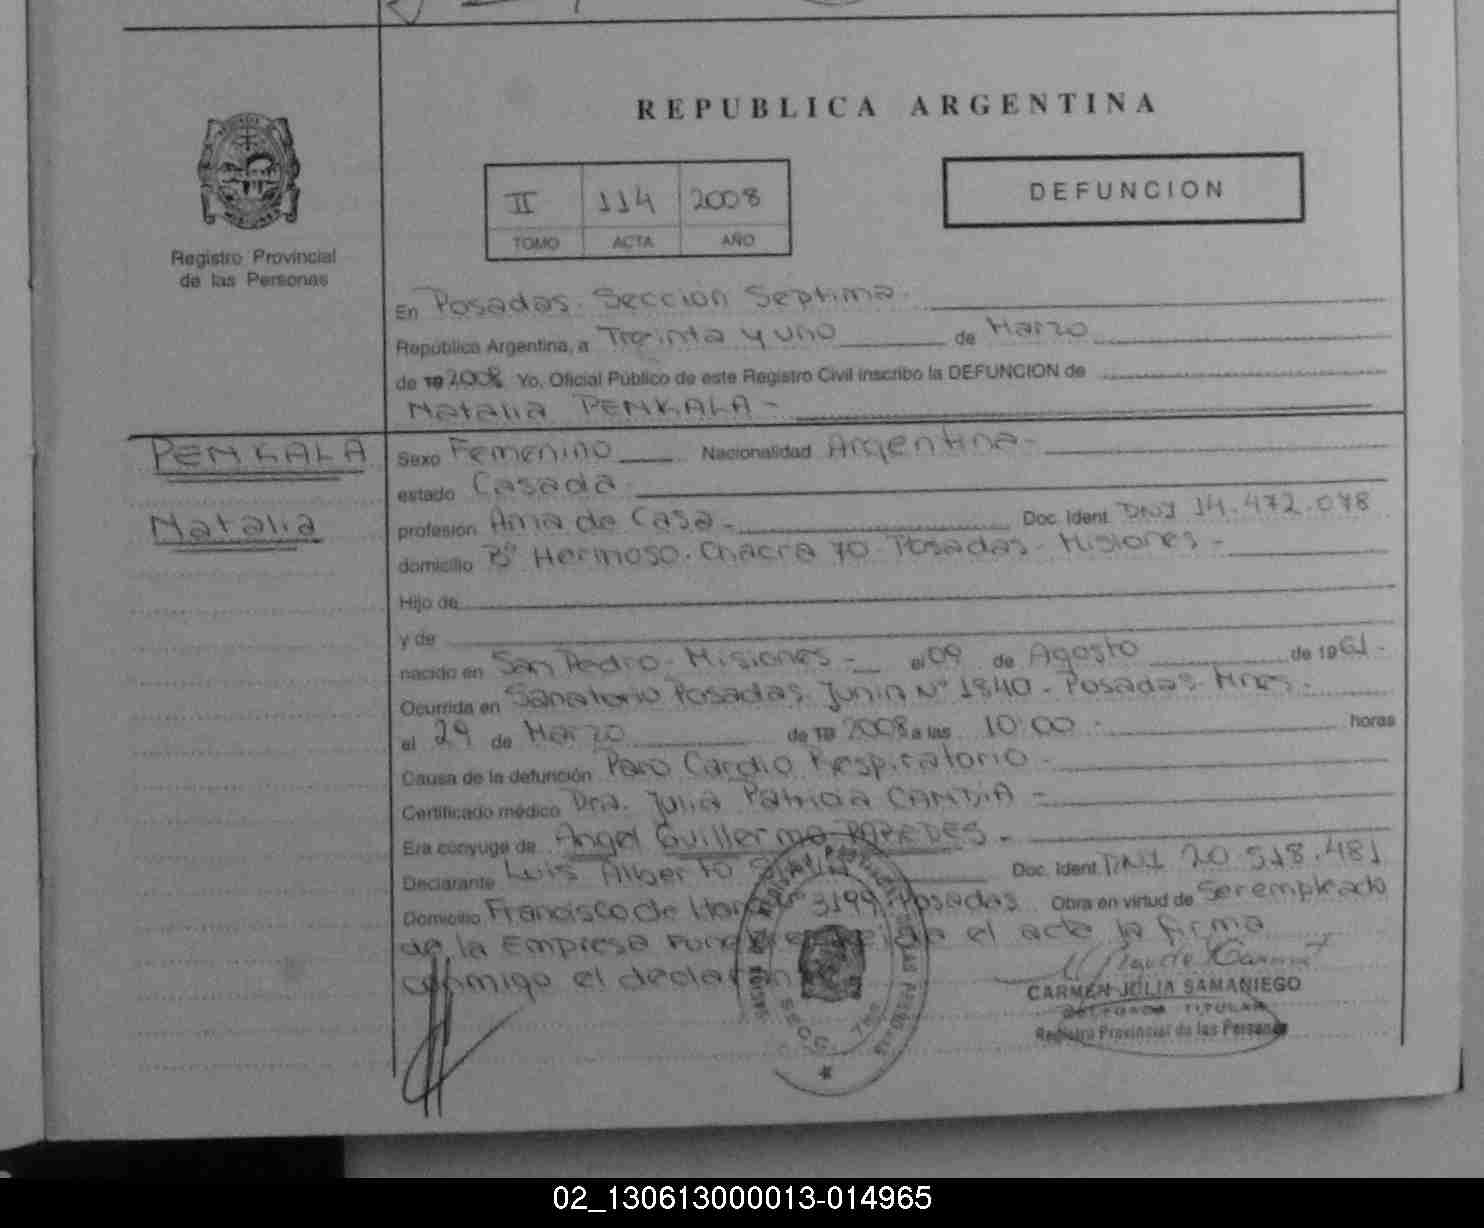 REPUBLICA ARGENTINA
II 114 2008
TOMO ACTA AÑO
DEFUNCION
Registro Provincial
de las Personas
En Posadas. Sección Septima.
República Argentina, a Treinta y uno de Marzo
de 19 2008 Yo, Oficial Público de este Registro Civil inscribo la DEFUNCION de
Natalia PENKALA -
PENKALA
Natalia
Sexo Femenino Nacionalidad Argentina-
estado Casada
profesión Ama de Casa- Doc. Ident. DNI 14.472.078
domicilio Bº Hermoso. Chacra 70. Posadas. Misiones -
Hijo de
y de
nacido en San Pedro. Misiones - el 09 de Agosto de 1961.
Ocurrida en Sanatorio Posadas. Junin Nº 1840 - Posadas Mnes.
el 29 de Marzo de 19 2008 a las 10:00 - horas
Causa de la defunción Paro Cardio Respiratorio -
Certificado médico Dra. Julia Patricia CANDIA -
Era conyuge de Angel Guillermo PAREDES -
Declarante Luis Alberto Doc. Ident. DNI 20.518.481
Domicilio Francisco de Haro 3199 Posadas Obra en virtud de Ser empleado
de la Empresa el acta la firma
conmigo el declarante
SECC. 7ma
CARMEN JULIA SAMANIEGO
DELEGADA TITULAR
Registro Provincial de las Personas
02_130613000013-014965